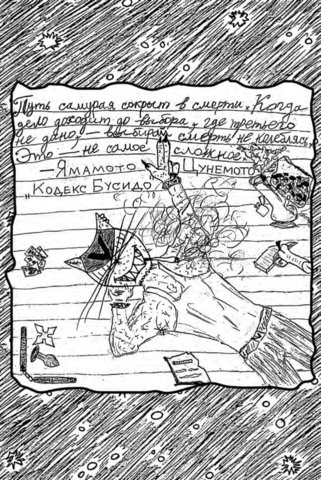 "Путь самурая сокрыт в смерти. Когда
дело доходит до выбора, где третьего
не дано, — выбирай смерть не колеблясь.
Это — не самое сложное."
— Ямамото Цунемото
„Кодекс Бусидо"